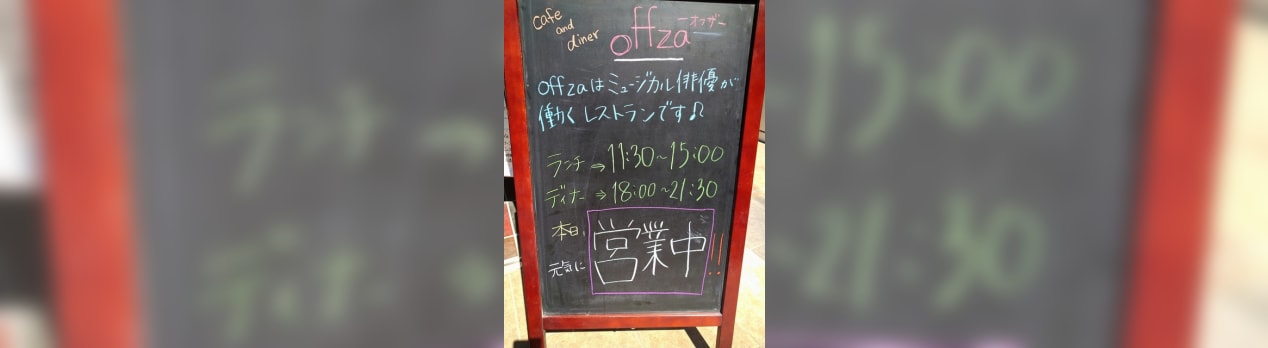 cafe
and
diner
offza
ーオフザー
offzaはミュージカル俳優が
働くレストランです♪
ランチ⇒11:30~15:00
ディナー⇒18:00~21:30
本日、
元気に
営業中!!